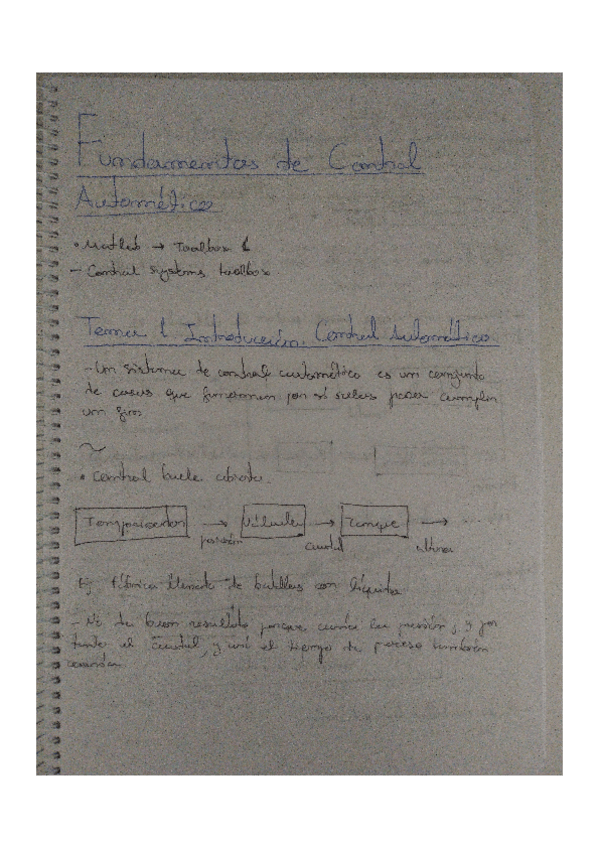 Fundamentos de Control
Automático
• Matlab → Toolbox 1
- Control systems toolbox
Tema 1 Introducción. Control Automático
- Un sistema de control automático es un conjunto
de cosas que funcionan por sí solas para cumplir
un fin
• Control bucle abierto.
Temporizador → Válvula → Tanque →
posición caudal altura
Ej fábrica llenado de botellas con líquido
- No da buen resultado porque varía la presión, y por
tanto el caudal, y así el tiempo de proceso también